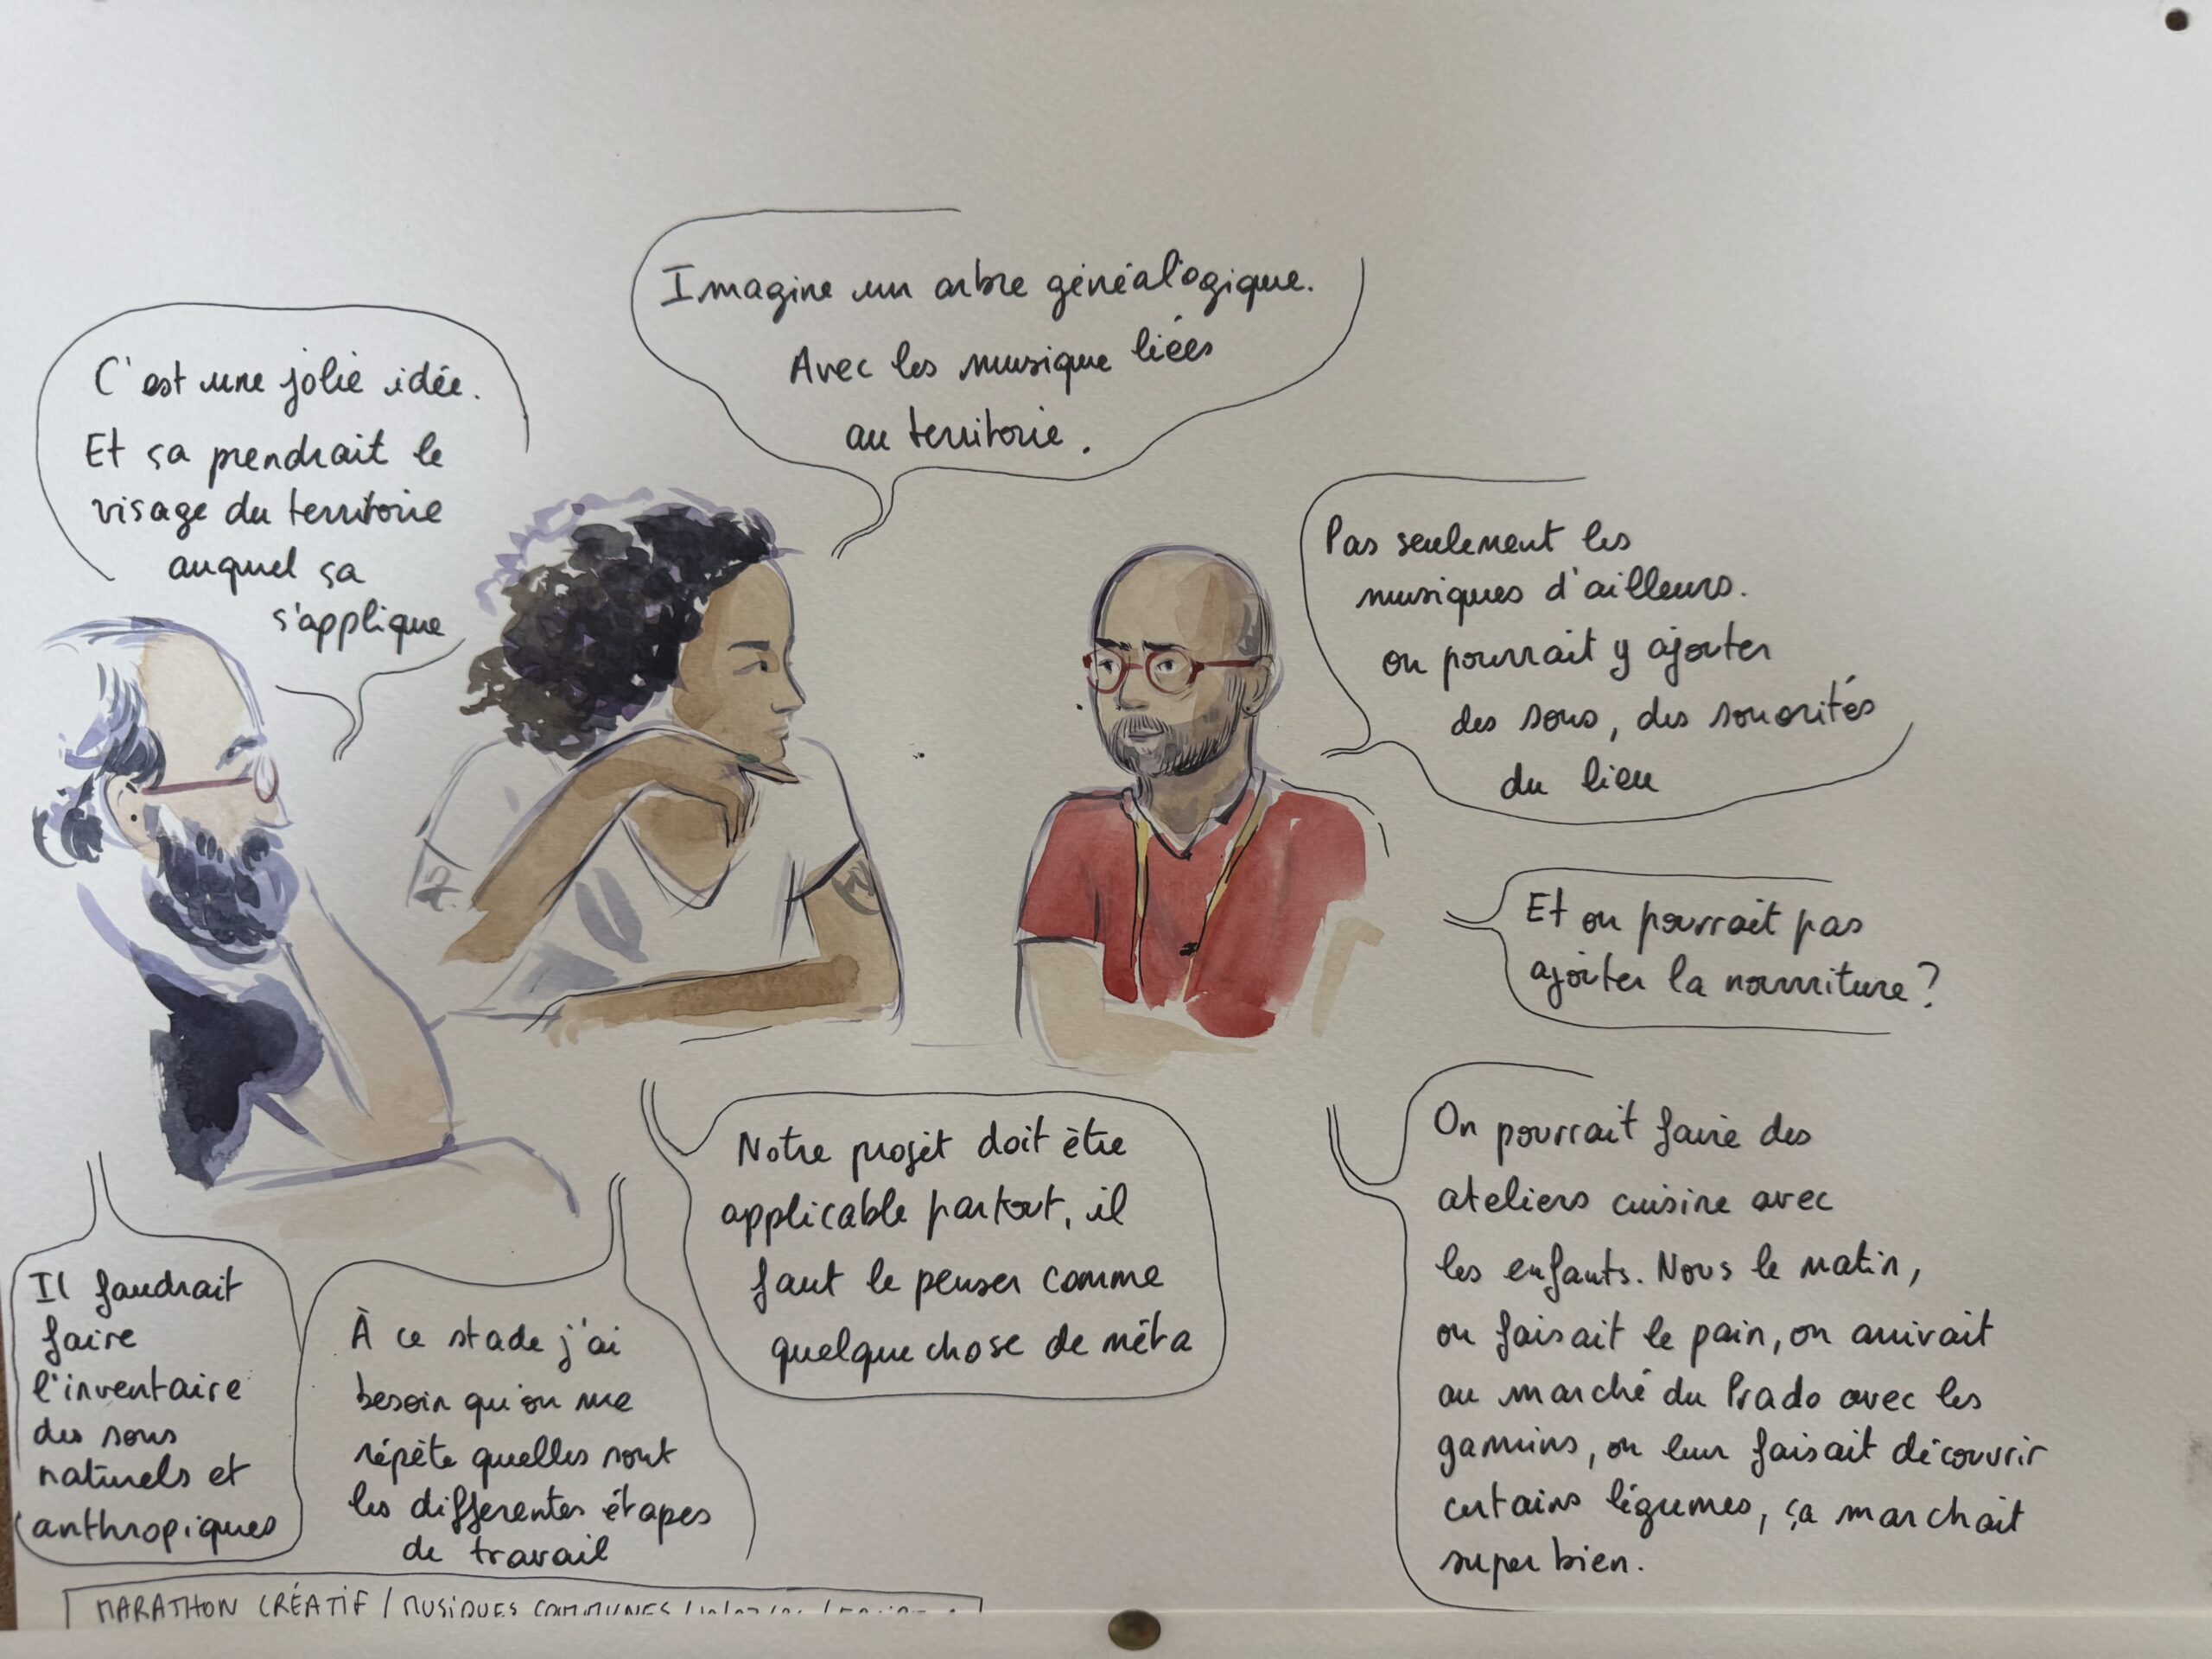 Imagine un arbre généalogique.
Avec les musique liées
au territoire.
C'est une jolie idée.
Et ça prendrait le
visage du territoire
auquel ça
s'applique
Pas seulement les
musiques d'ailleurs.
on pourrait y ajouter
des sons, des sonorités
du lieu
Et on pourrait pas
ajouter la nourriture?
On pourrait faire des
ateliers cuisine avec
les enfants. Nous le matin,
on faisait le pain, on arrivait
au marché du Prado avec les
gamins, on leur faisait découvrir
certains légumes, ça marchait
super bien.
Notre projet doit être
applicable partout, il
faut le penser comme
quelque chose de méta
À ce stade j'ai
besoin qu'on me
répète quelles sont
les differentes étapes
de travail
Il faudrait
faire
l'inventaire
des sons
naturels et
anthropiques
MARATHON CRÉATIF / MUSIQUES COMMUNES /